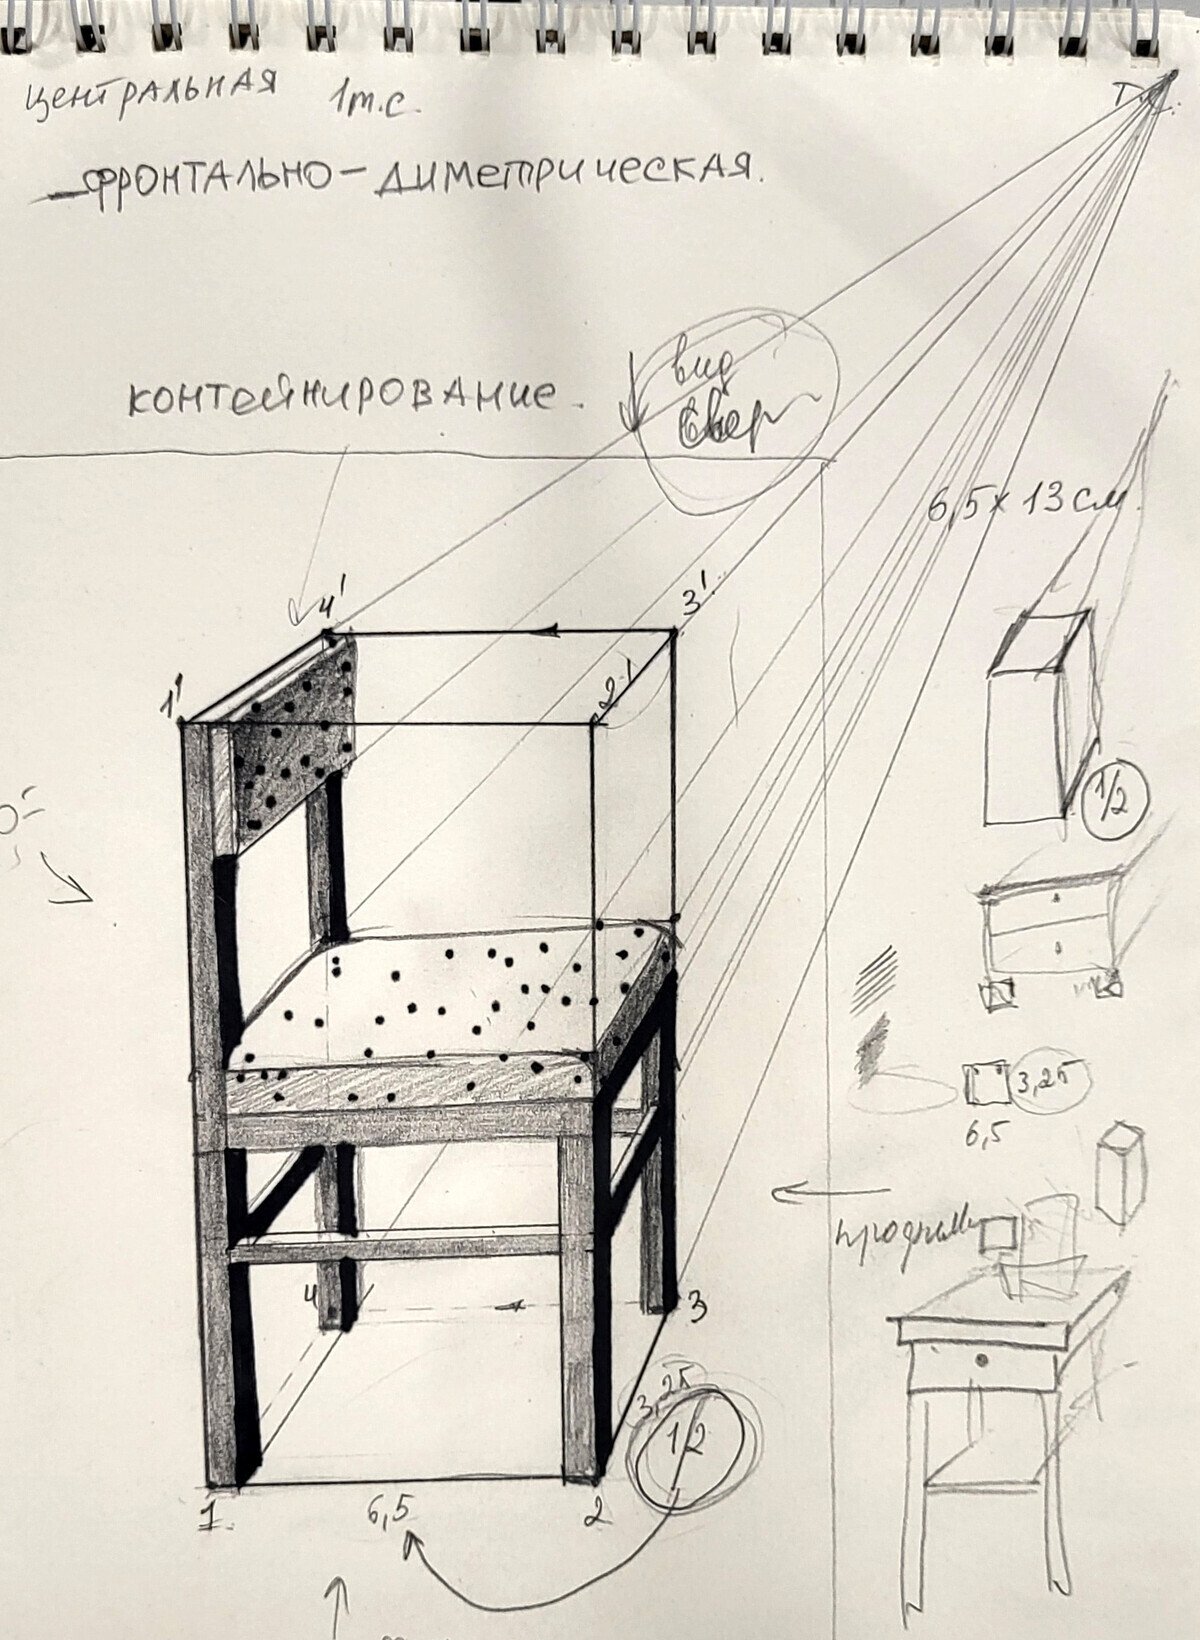 центральная 1т.с.
фронтально-диметрическая.
Т.С.
контейнирование.
вид
6,5 х 13 см.
4'
3'
1'
2'
1/2
3,25
6,5
4
3
3,25
1/2
1.
6,5
2